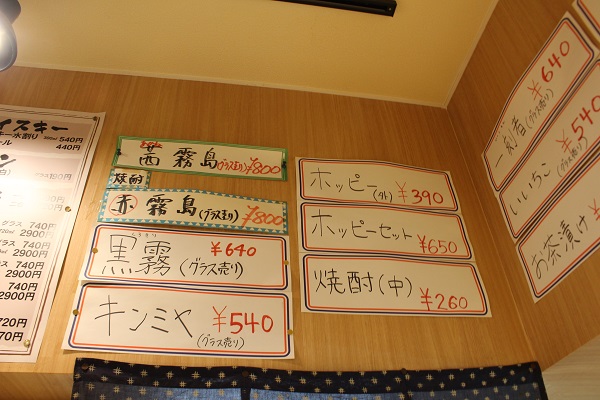 イスキー
キー水割り 540円
ール 440円
グラス 740円
2900円
グラス 740円
2900円
グラス 740円
2900円
740円
2900円
720円
70円
茜霧島(グラス売り)¥800
焼酎
赤霧島(グラス売り)¥800
くろきり
黒霧(グラス売り)¥640
キンミヤ(グラス売り)¥540
ホッピー(外)¥390
ホッピーセット¥650
焼酎(中)¥260
一刻者(グラス売り)¥640
いいちこ(グラス売り)¥540
お茶漬け¥